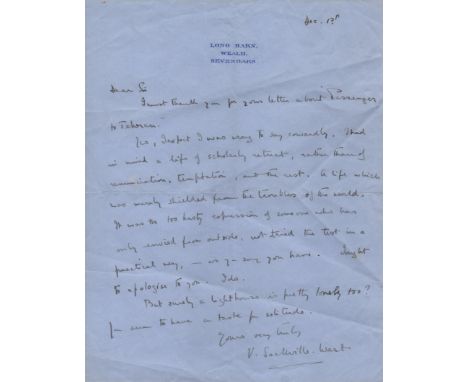 Dec. 13th
LONG BARN,
WEALD,
SEVENOAKS
Dear Sir
I must thank you for your letter about "Passenger
to Teheran."
Yes, I expect I was wrong to say cowardly. I had
in mind a life of scholarly retreat, rather than of
renunciation, temptation, and the rest. A life which
was merely shielded from the troubles of the world.
It was the too hasty expression of someone who has
only envied from outside, not tried the test in a
practical way, – as you say you have. I ought
to apologise to you. I do.
But surely a lighthouse is pretty lonely too?
You seem to have a taste for solitude.
Yours very truly,
V. Sackville-West